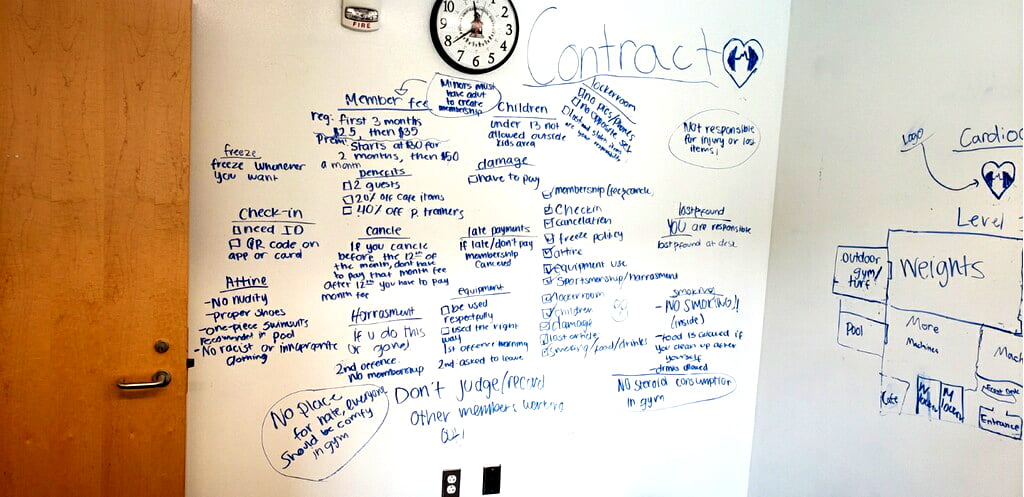 10
2
9
3
8
4
7
6
5
FIRE
Contract
Minors must
have adult
to create
membership
Member fee
reg: first 3 months
$25, then $35
Prem: starts at $30 for
2 months, then $50
a month
benefits
2 guests
20% off cafe items
40% off p. trainers
freeze
freeze whenever
you want
Check-in
need ID
QR code on
app or card
Attire
-No nudity
-proper shoes
-one-piece swimsuits
recommended in pool
-No racist or inappropriate
clothing
Cancle
If you cancle
before the 12th of
the month, dont have
to pay that month fee
After 12th you have to pay
month fee
Harrasment
If u do this
ur gone)
2nd offence.
No membership
Children
under 13 not
allowed outside
kids area
damage
have to pay
late payments
If late/don't pay
membership
canceled
equipment
be used
respectfully
used the right
way
1st offence warning
2nd asked to leave
lockerroom
no pics/phones
no opposite sex
lost and stolen items
are your responsibility
membership/fee/cancle,
Checkin
cancelation
freeze policy
attire
equipment use
Sportsmenship/harrasment
lockerroom
children
damage
lost article
smoking/food/drinks
Not responsible
for injury or lost
items!
lost & found
YOU are responsible
lost & found at desk
smoking
-NO SMOKING!!
(inside)
-Food is allowed if
you clean up after
yourself
-drinks allowed
No steroid consumption
in gym
No place
for hate, everyone
should be comfy
in gym
Don't judge/record
other members working
out!
Logo
Cardio
Level 1
outdoor
gym/
turf
Weights
Pool
More
Machines
Mach
Front Desk
Cafe
W
locker
M
locker
Entrance